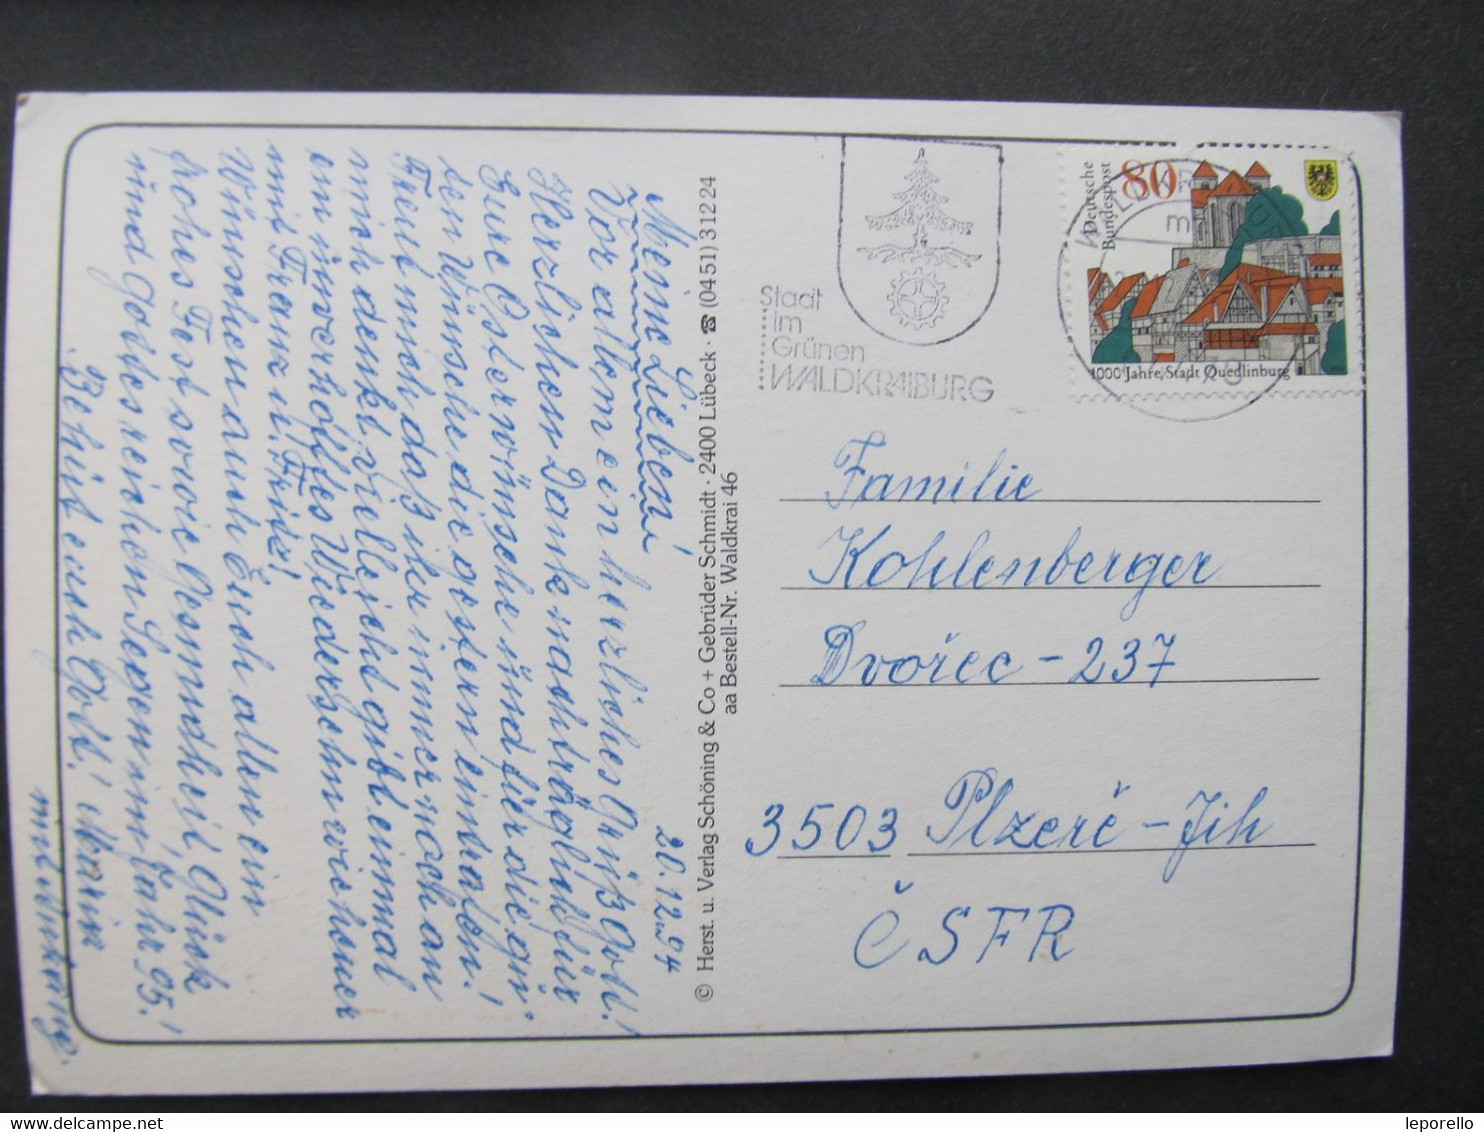 20.12.94
Meine Lieben!
Vor allem ein herzliches Grüß Gott!
Herzlichen Dank nachträglich für
Eure Osterwünsche und für die gu-
ten Wünsche die gestern eintrafen!
Freut mich daß ihr immer noch an
mich denkt. Vielleicht gibt einmal
ein unverhofftes Wiedersehn wir
mit Franz u. Fritz!
Wünschen auch Euch allen ein
frohes Fest sowie Gesundheit Glück
und Gottes reichen Segen im Jahr 95.!
Behüt euch Gott! Marie
mit
© Herst. u. Verlag Schöning & Co + Gebrüder Schmidt · 2400 Lübeck · ☎ (04 51) 3 12 24
aa Bestell-Nr. Waldkrai 46
Stadt
im
Grünen
WALDKRAIBURG
Deutsche
Bundespost
80
1000 Jahre Stadt Quedlinburg
Familie
Kohlenberger
Dvořec - 237
3503 Plzeň - Jih
ČSFR
leporello